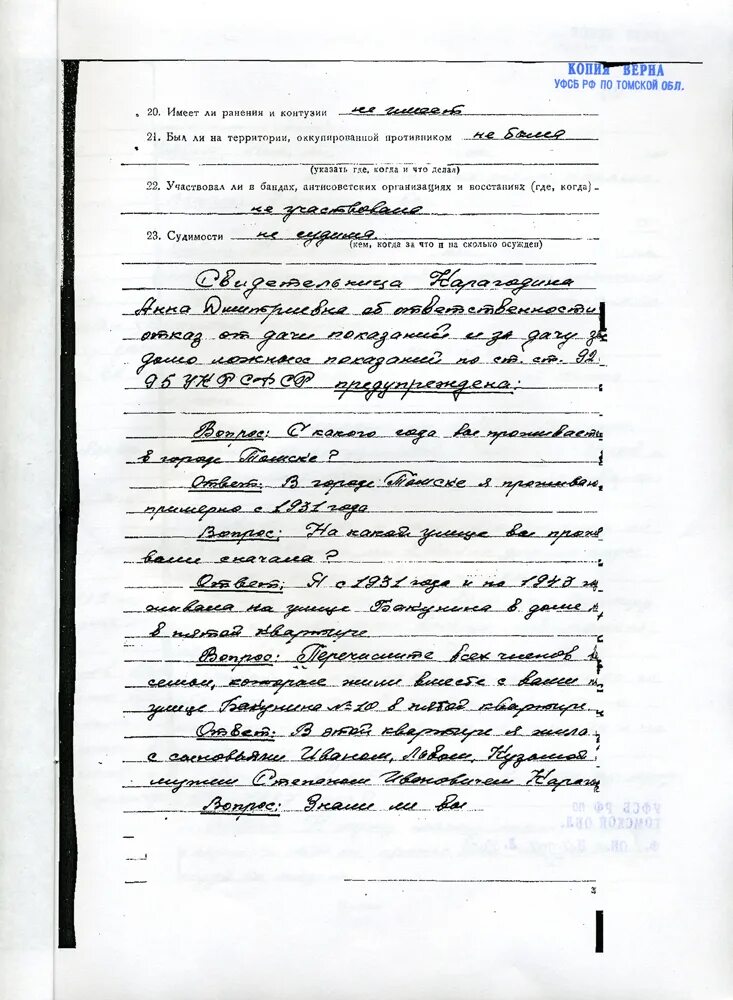 КОПИЯ ВЕРНА
УФСБ РФ ПО ТОМСКОЙ ОБЛ.
20. Имеет ли ранения и контузии не имеет
21. Был ли на территории, оккупированной противником не была
(указать где, когда и что делал)
22. Участвовал ли в бандах, антисоветских организациях и восстаниях (где, когда)
не участвовала
23. Судимости не судима
(кем, когда за что и на сколько осужден)
Свидетельница Карагодина
Анна Дмитриевна об ответственности
отказ от дачи показаний и за дачу з
домо ложных показаний по ст. ст. 92
95 УК РСФСР предупреждена:
Вопрос: С какого года вы проживаете
в городе Томске?
Ответ: В городе Томске я проживаю
примерно с 1931 года
Вопрос: На какой улице вы прожи
вали сначала?
Ответ: Я с 1931 года и по 194
живала на улице Бакунина в доме
в пятой квартире
Вопрос: Перечислите всех членов
семьи, которые жили вместе с вами
улице Бакунина № 20 в пятой квартире.
Ответ: В этой квартире я жила
с сыновьями Иваном, Львом, Кузьмой
мужем Степаном Ивановичем Караго
Вопрос: Знали ли вы
УФСБ РФ ПО
ТОМСКОЙ ОБЛ.